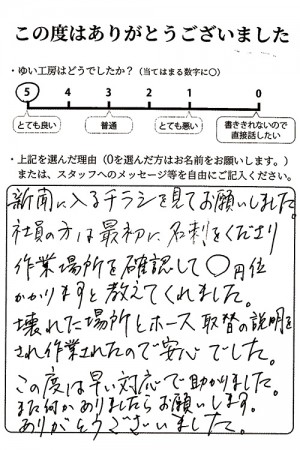 この度はありがとうございました
・ゆい工房はどうでしたか？（当てはまる数字に○）
5 4 3 2 1 0
とても良い 普通 とても悪い 書ききれないので直接話したい
・上記を選んだ理由（0を選んだ方はお名前をお願いします。）
または、スタッフへのメッセージ等を自由にご記入ください。
新聞に入るチラシを見てお願いしました。
社員の方は最初に名刺をくださり
作業場所を確認して〇円位
かかりますと教えてくれました。
壊れた場所とホース取替の説明を
され作業されたので安心でした。
この度は早い対応で助かりました。
また何かありましたらお願いします。
ありがとうございました。